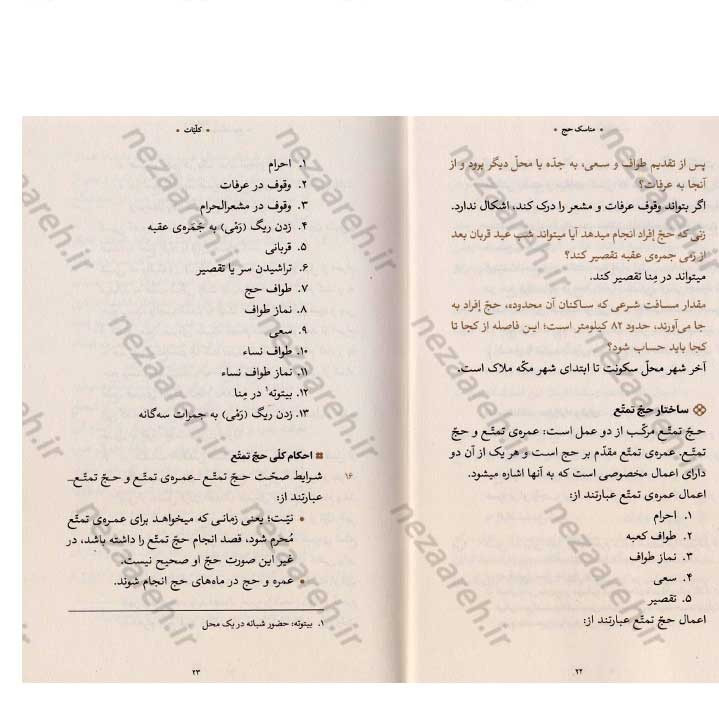 • مناسک حج •
پس از تقدیم طواف و سعی، به جدّه یا محلّ دیگر برود و از
آنجا به عرفات؟
اگر بتواند وقوف عرفات و مشعر را درک کند، اشکال ندارد.
زنی که حجّ إفراد انجام میدهد آیا میتواند شب عید قربان بعد
از رَمی جمره‌ی عقبه تقصیر کند؟
میتواند در مِنا تقصیر کند.
مقدار مسافت شرعی که ساکنان آن محدوده، حجّ إفراد به
جا می‌آورند، حدود ۸۲ کیلومتر است؛ این فاصله از کجا تا
کجا باید حساب شود؟
آخر شهر محلّ سکونت تا ابتدای شهر مکّه ملاک است.
ساختار حجّ تمتّع
حجّ تمتّع مرکّب از دو عمل است: عمره‌ی تمتّع و حجّ
تمتّع. عمره‌ی تمتّع مقدّم بر حج است و هر یک از آن دو
دارای اعمال مخصوصی است که به آنها اشاره میشود.
اعمال عمره‌ی تمتّع عبارتند از:
۱. احرام
۲. طواف کعبه
۳. نماز طواف
۴. سعی
۵. تقصیر
اعمال حجّ تمتّع عبارتند از:
۲۲
• کلّیّات •
۱. احرام
۲. وقوف در عرفات
۳. وقوف در مشعرالحرام
۴. زدن ریگ (رَمْی) به جَمَره‌ی عقبه
۵. قربانی
۶. تراشیدن سر یا تقصیر
۷. طواف حج
۸. نماز طواف
۹. سعی
۱۰. طواف نساء
۱۱. نماز طواف نساء
۱۲. بیتوته۱ در مِنا
۱۳. زدن ریگ (رَمْی) به جمرات سه‌گانه
احکام کلّی حجّ تمتّع
۱۶ شرایط صحّت حجّ تمتّع ـ‌عمره‌ی تمتّع و حجّ تمتّع‌ـ
عبارتند از:
• نیّت؛ یعنی زمانی که میخواهد برای عمره‌ی تمتّع
مُحرم شود، قصد انجام حجّ تمتّع را داشته باشد، در
غیر این صورت حجّ او صحیح نیست.
• عمره و حج در ماه‌های حج انجام شوند.
۱. بیتوته: حضور شبانه در یک محل
۲۳
nezaareh.ir
nezaareh.ir
nezaareh.ir
nezaareh.ir
nezaareh.ir
nezaareh.ir
nezaareh.ir
nezaareh.ir
nezaareh.ir
nezaareh.ir